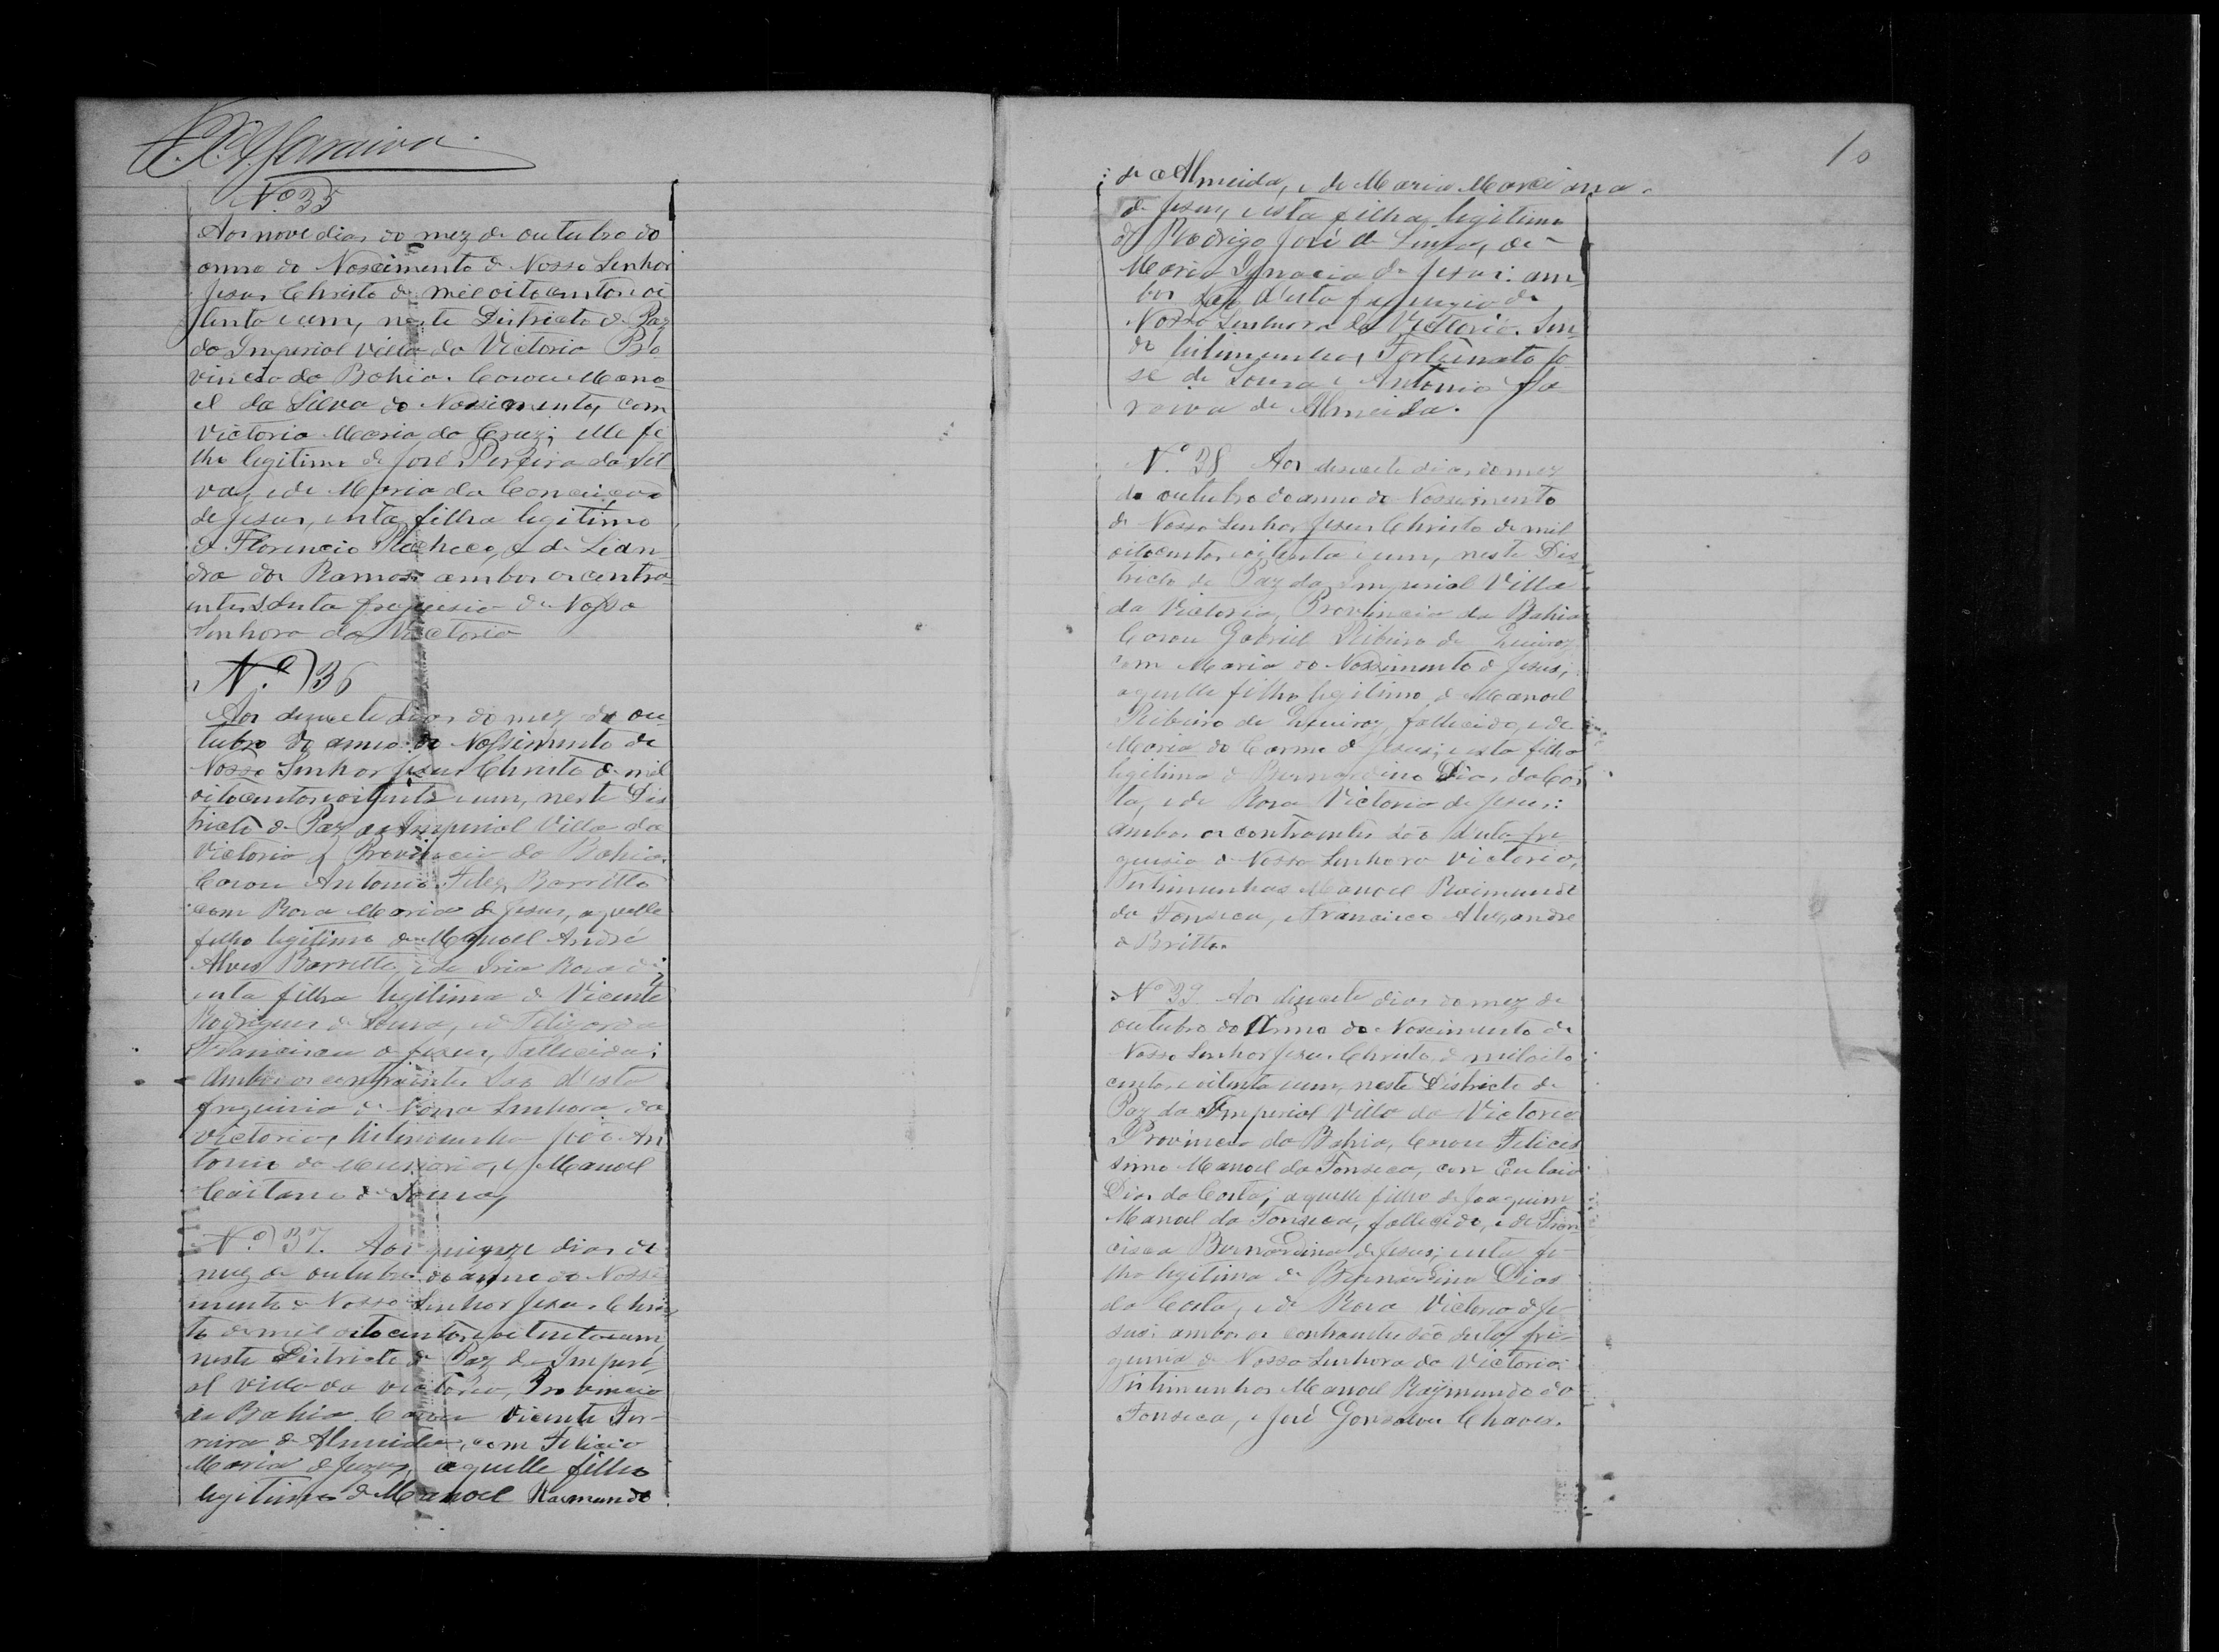 Nº 35
Aos nove dias do mez de outubro do
anno do Nascimento de Nosso Senhor
Jesus Christo de mil oitocentos e oi
tenta e um, neste Districto de Paz
da Imperial Villa da Victoria Pro
vincia da Bahia. Casou Mano-
el da Silva do Nascimento, com
Victoria Maria da Cruz; elle fi
lho legitimo de José Pereira da Sil
va, e de Maria da Conceicão
de Jesus, e esta filha legitima
de Florencio Pacheco, e de Lian
dra dos Ramos: ambos os contra-
entes desta freguesia de Nossa
Senhora da Victoria
Nº 36
Aos dezesete dias do mez de ou
tubro do anno do Nassimento de
Nosso Senhor Jesus Christo de mil
oitocentos e oitenta e um, neste Dis
tricto de Paz da Imperial Villa da
Victoria Provincia da Bahia.
Casou Antonio Felix Barretto
com Rosa Maria de Jesus, aquelle
filho legitimo de Manoel André
Alves Barretto, e de Iria Rosa
esta filha legitima de Vicente
Rodrigues de Sousa, e de Felizarda
Francisca de Jesus, fallecida;
ambos os contraentes são d'esta
freguisia de Nossa Senhora da
Victoria, testimunhas João An
tonio do, e Manoel
Caitano de Sousa,
Nº 37. Aos quinze dias do
mez de outubro do anno do Nassi
mento de Nosso Senhor Jesus Chris
to de mil oitocentos e oitenta e um,
neste Districto de Paz da Imperi
al Villa da Victoria, Provincia
da Bahia. Casou Vicente Fer-
reira de Almeida, com Felicia
Maria de Jezus, aquelle filho
legitimo de Manoel Raimundo
10
de Almeida, e de Maria Marciana
de Jesus, e esta filha legitima
de Rodrigo José de Souza, e de
Maria Ignacia de Jesus: am
bos são d'esta freguezia de
Nossa Senhora da Victoria. Sen
do testimunhas, Fortunato Jo
sé de Sousa e Antonio Sa
raiva de Almeida.
Nº 38 Aos desecete dias do mez
de outubro do anno do Nassimento
de Nosso Senhor Jesus Christo de mil
oitocentos e oitenta e um, neste Dis
tricto de Paz da Imperial Villa
da Victoria, Provincia da Bahia
Casou Gabriel Ribeiro de Queiroz,
com Maria do Nassimento de Jesus;
aquelle filho legitimo de Manoel
Ribeiro de Queiroz, fallecido, e de
Maria do Carmo de Jesus; e esta filha
legitima de Bernardino Dias da Cos
ta, e de Rosa Victoria de Jesus:
ambos os contraentes são d'esta fre
guisia de Nossa Senhora Victoria;
Testimunhas Manoel Raimundo
da Fonseca, e Francisco Alexandre
de Britto.
Nº 39. Aos desecete dias do mez de
outubro do Anno do Nascimento de
Nosso Senhor Jesus Christo de mil oito
centos e oitenta e um, neste Districto de
Paz da Imperial Villa da Victoria
Provincia da Bahia, Casou Felicis
simo Manoel da Fonseca, com Eulaia
Dias da Costa; aquelle filho de Joaquim
Manoel da Fonseca, fallecido, e de Fran
cisca Bernardina de Jesus; e esta fi-
lha legitima de Bernardino Dias
da Costa, e de Rosa Victoria de Je-
sus: ambos os contraentes são desta fre-
guesia de Nossa Senhora da Victoria:
Testimunhas Manoel Raymundo da
Fonseca, e José Gonsalves Chaves.